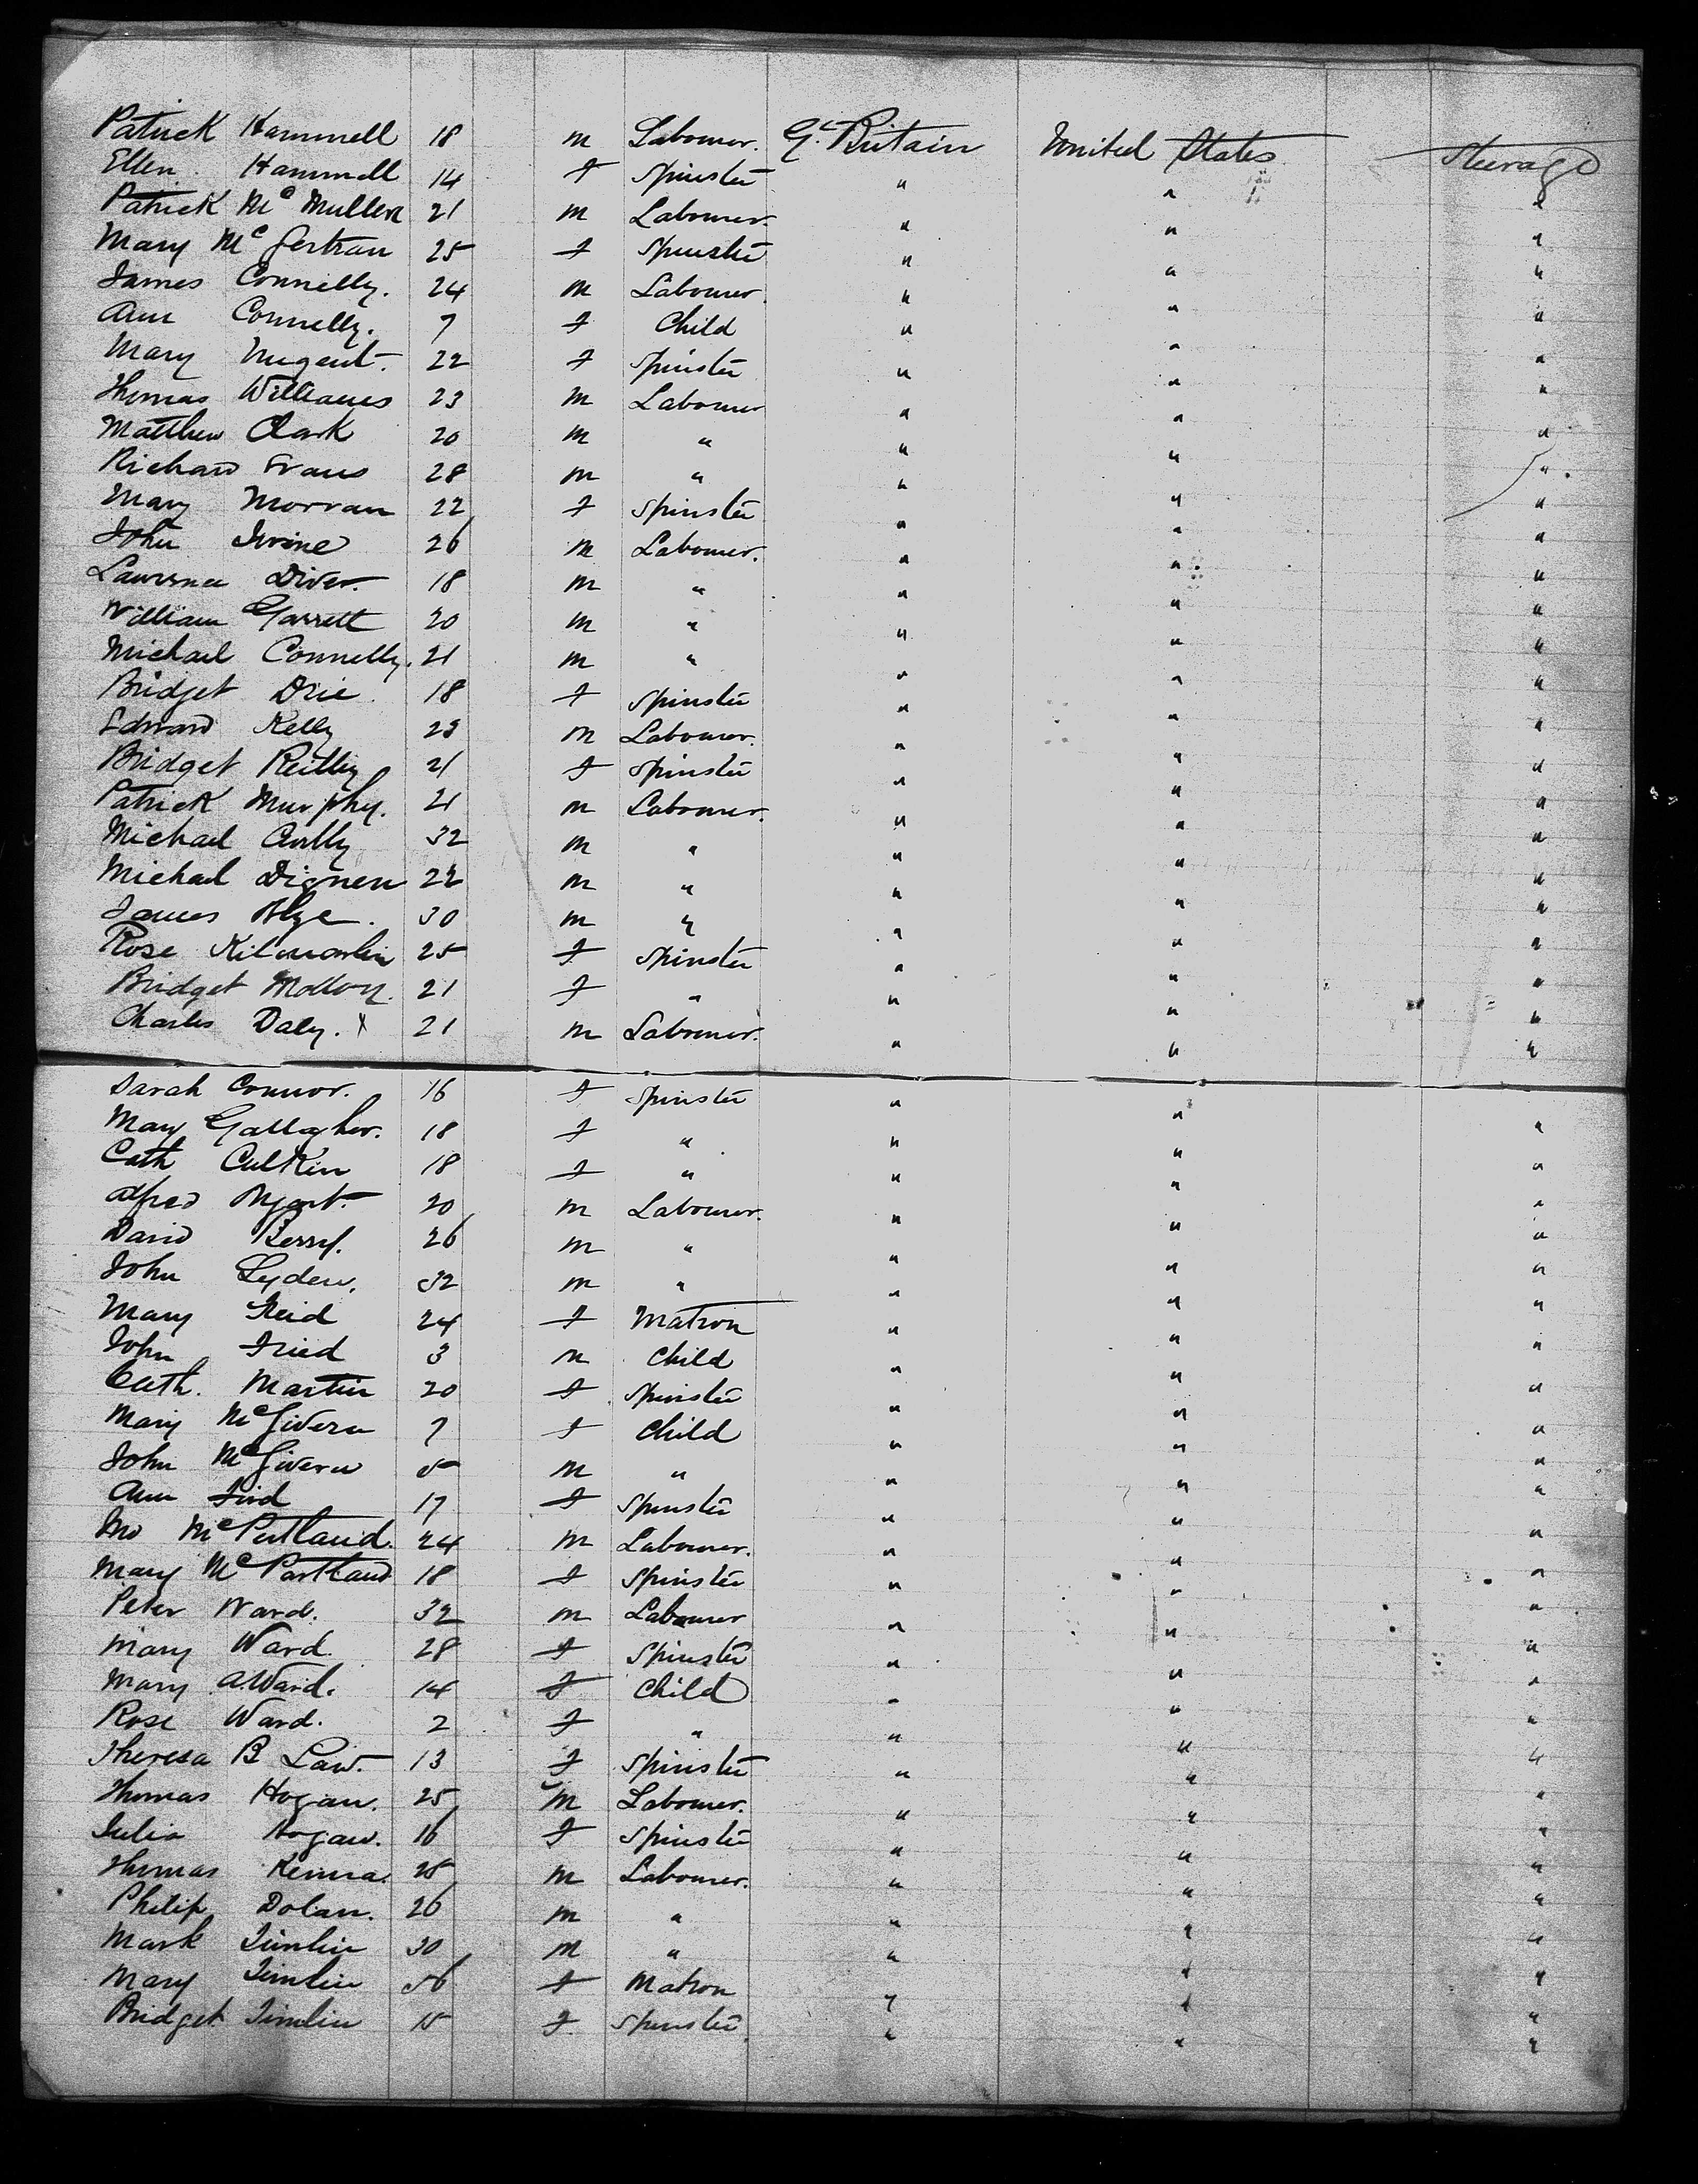 Patrick Hammell 18 m Labourer. Gt. Britain United States Steerage
Ellen Hammell 14 f Spinster " " "
Patrick Mc Mullen 21 m Labourer. " " "
Mary Mc Gertran 25 f Spinster " " "
James Connelly. 24 m Labourer. " " "
Ann Connelly. 7 f Child " " "
Mary Nugent. 22 f Spinster " " "
Thomas Williams 23 m Labourer " " "
Matthew Clark 20 m " " " "
Richard Evans 28 m " " " "
Mary Morran 22 f Spinster " " "
John Irvine 26 m Labourer. " " "
Lawrence Diver. 18 m " " " "
William Garrett 20 m " " " "
Michael Connelly. 21 m " " " "
Bridget 18 f Spinster " " "
Edward Kelly 23 m Labourer. " " "
Bridget Reilly 21 f Spinster " " "
Patrick Murphy. 21 m Labourer. " " "
Michael 32 m " " " "
Michael Dignen 22 m " " " "
James 30 m " " " "
Rose Kilmartin 25 f Spinster " " "
Bridget Molloy. 21 f " " " "
Charles Daly. x 21 m Labourer. " " "
Sarah Connor. 16 f Spinster " " "
Mary Gallagher. 18 f " " " "
Cath Culkin 18 f " " " "
Alfred 20 m Labourer. " " "
David Berry. 26 m " " " "
John Lyden. 32 m " " " "
Mary 24 f Matron " " "
John 3 m Child " " "
Cath. Martin 20 f Spinster " " "
Mary McGivern 7 f Child " " "
John McGivern 5 m " " " "
Ann 17 f Spinster " " "
McPartland. 24 m Labourer. " " "
Mary McPartland 18 f Spinster " " "
Peter Ward. 32 m Labourer " " "
Mary Ward. 28 f Spinster " " "
Mary A. Ward. 14 f Child " " "
Rose Ward. 2 f " " " "
Theresa B Law. 13 f Spinster " " "
Thomas Hogan. 25 m Labourer. " " "
Julia Hogan. 16 f Spinster " " "
Thomas Kenna. 25 m Labourer. " " "
Philip Dolan. 26 m " " " "
Mark Timlin 30 m " " " "
Mary Timlin 56 f Matron " " "
Bridget Timlin 15 f Spinster " " "